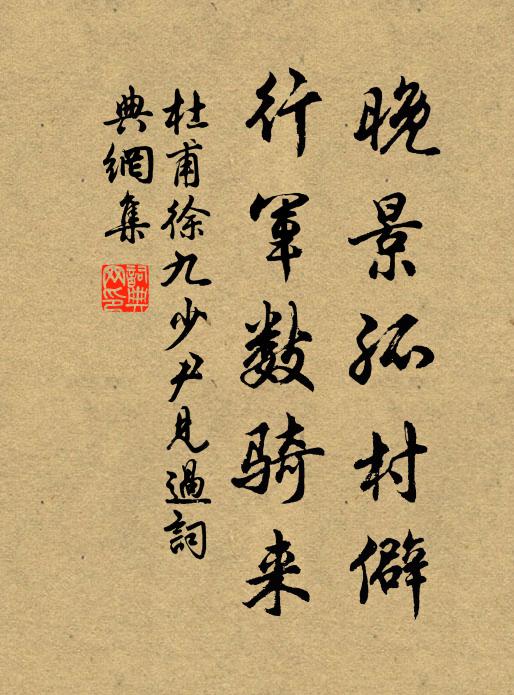 晚景孤村僻
行軍數騎来
杜甫徐九少尹見過詞
典網集
詞典
网印